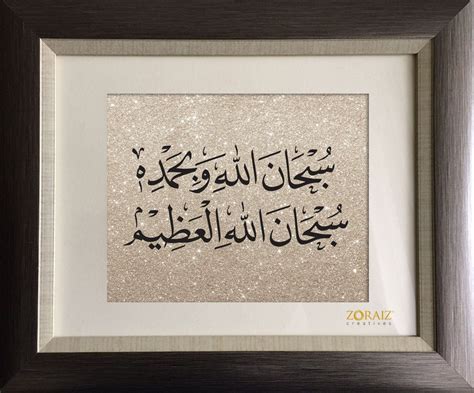 سُبْحَانَ اللهِ وَبِحَمْدِهِ
سُبْحَانَ اللهِ الْعَظِيْمِ
ZORAIZ
creatives